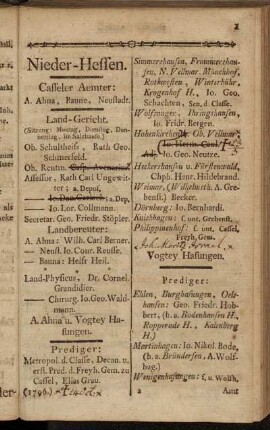 1
Nieder-Hessen.
Casseler Aemter:
A. Ahna, Baunic, Neustadt.
Land-Gericht.
(Sitzung: Montag, Dienstag, Don-
nerstag, im Salzhause.)
Ob. Schultheiss, Rath Geo.
Schmerfeld.
Ob. Rentm.
Assessor, Rath Carl Ungewit-
ter; a. Depos.
Jo. Lor. Collmann.
Secretar. Geo. Friedr. Stöpler.
Landbereuter:
A. Ahna: Wilh. Carl Berner.
— Neust. Jo. Conr. Reusse.
— Bauna: Helfr. Heil.
Land-Physicus, Dr. Cornel.
Grandidier.
— Chirurg. Jo. Geo. Wald-
mann.
A. Ahna u. Vogtey Ha-
sungen.
Prediger:
Metropol. d. Classe, Decan. u.
erst. Pred. d. Freyh. Gem. zu
Cassel, Elias Grau.
(1796.)
Simmershausen, Frommershau-
sen, N. Vellmar, Münchhof,
Rothwesten, Winterbühr,
Knogenhof H., Jo. Geo.
Schachten, Sen. d. Classe.
Wolfsanger, Ihringshausen,
Jo. Fridr. Bergen.
Hohenkirchen, Ob. Vellmar
Jo. Herm. Cnul
Adj. Jo. Geo. Neutze.
Heckershausen u. Fürstenwald,
Chph. Henr. Hildebrand.
Weimar, (Wilhelmsth. A. Gre-
benst.) Becker.
Dörnberg: Jo. Bernhardi.
Kalthhagen: f. unt. Grebenst.
Philippinenhof: f. unt. Cassel,
Freyh. Gem.
Vogtey Hasungen.
Prediger:
Ehlen, Burghasungen, Oels-
hausen: Geo. Friedr. Hob-
bert, (b. a. Bodenhausen H.,
Ropperode H., Kalenberg
H.)
Martinhagen: Jo. Nikel. Bode,
(b. a. Bründersen, A. Wolf-
hag.)
Wenigenhasungen: f. u. Wolfh.
a Amt